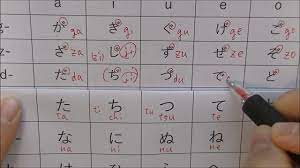 a i u e o
g- が ga ぎ gi ぐ gu げ ge ご go
ざ za じ ji ず zu ぜ ze ぞ zo
d- だ da ぢ ji づ du で ど
た ち つ て と
ta chi tu te
な に ぬ ね
na ni nu ne